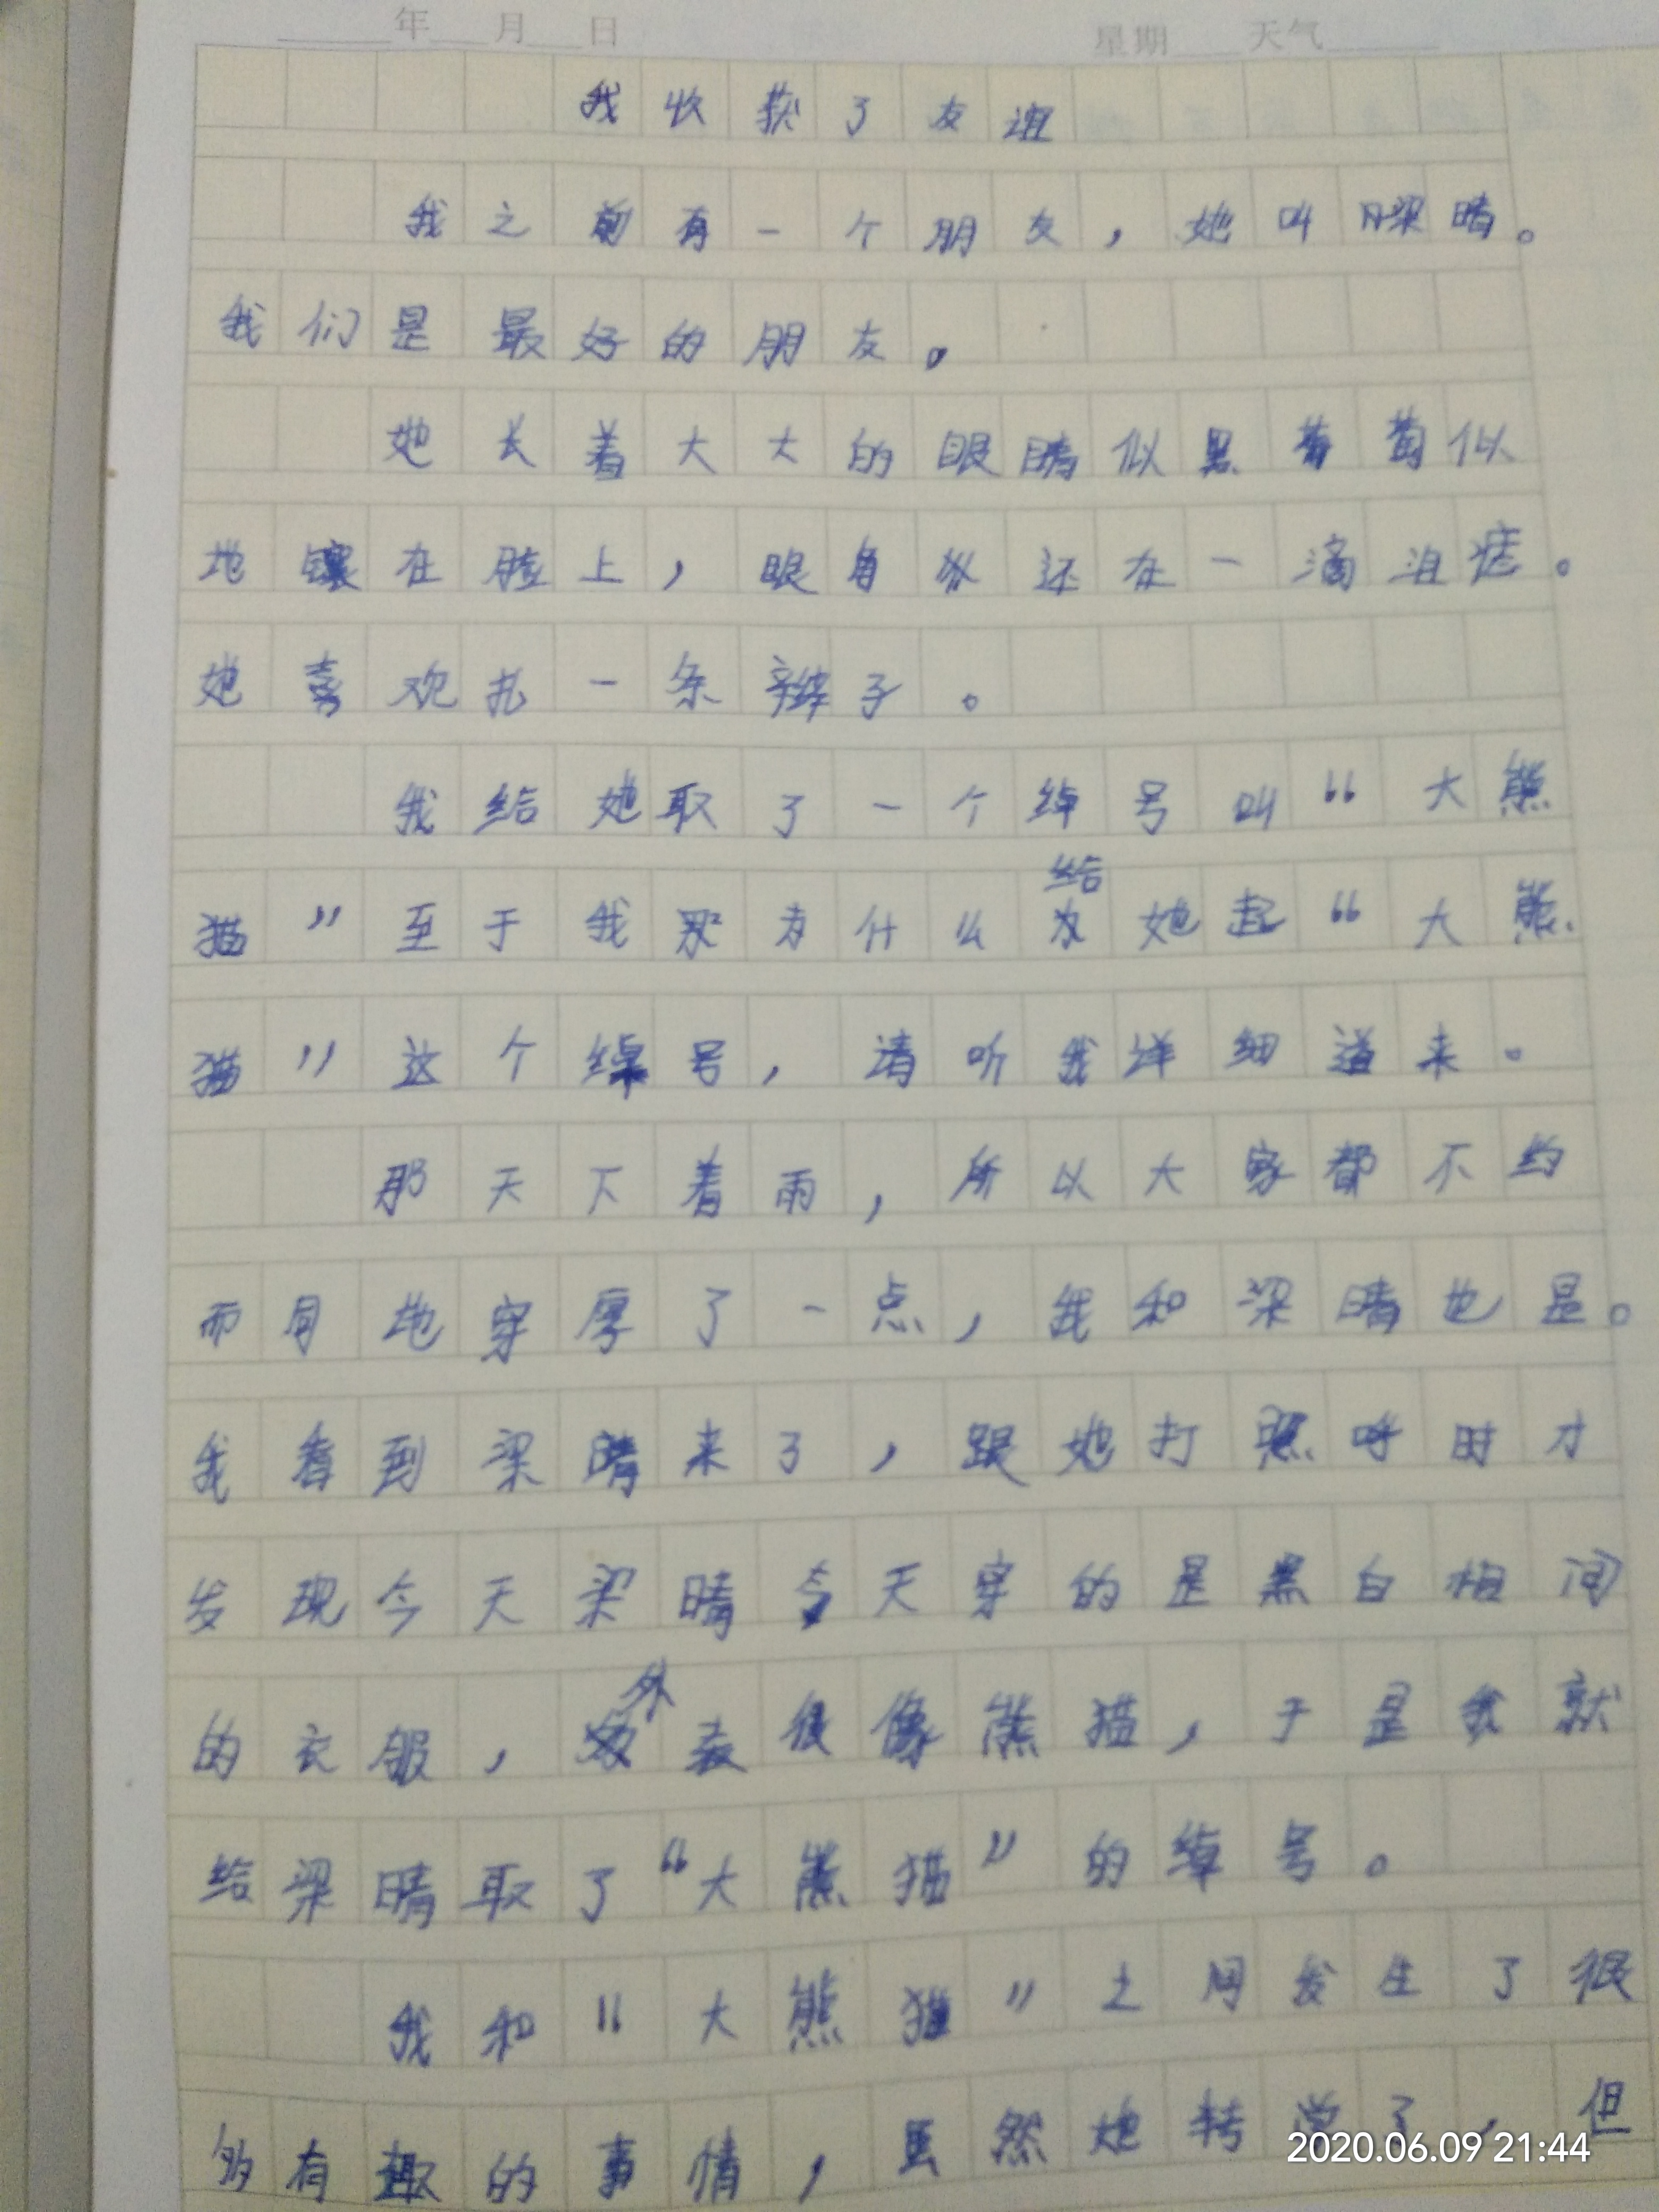 年 月 日 星期 天气
我收获了友谊
我之前有一个朋友，她叫梁晴。
我们是最好的朋友。
她长着大大的眼睛似黑葡萄似
地镶在脸上，眼角还在一滴泪痣。
她喜欢扎一条辫子。
我给她取了一个绰号叫“大熊
给
猫”至于我为什么她起“大熊
猫”这个绰号，请听我详细道来。
那天下着雨，所以大家都不约
而同地穿厚了一点，我和梁晴也是。
我看到梁晴来了，跟她打照呼时才
发现今天梁晴今天穿的是黑白相间
外
的衣服，表很像熊猫，于是我就
给梁晴取了“大熊猫”的绰号。
我和“大熊猫”之间发生了很
多有趣的事情，虽然她转学了，但
2020.06.09 21:44